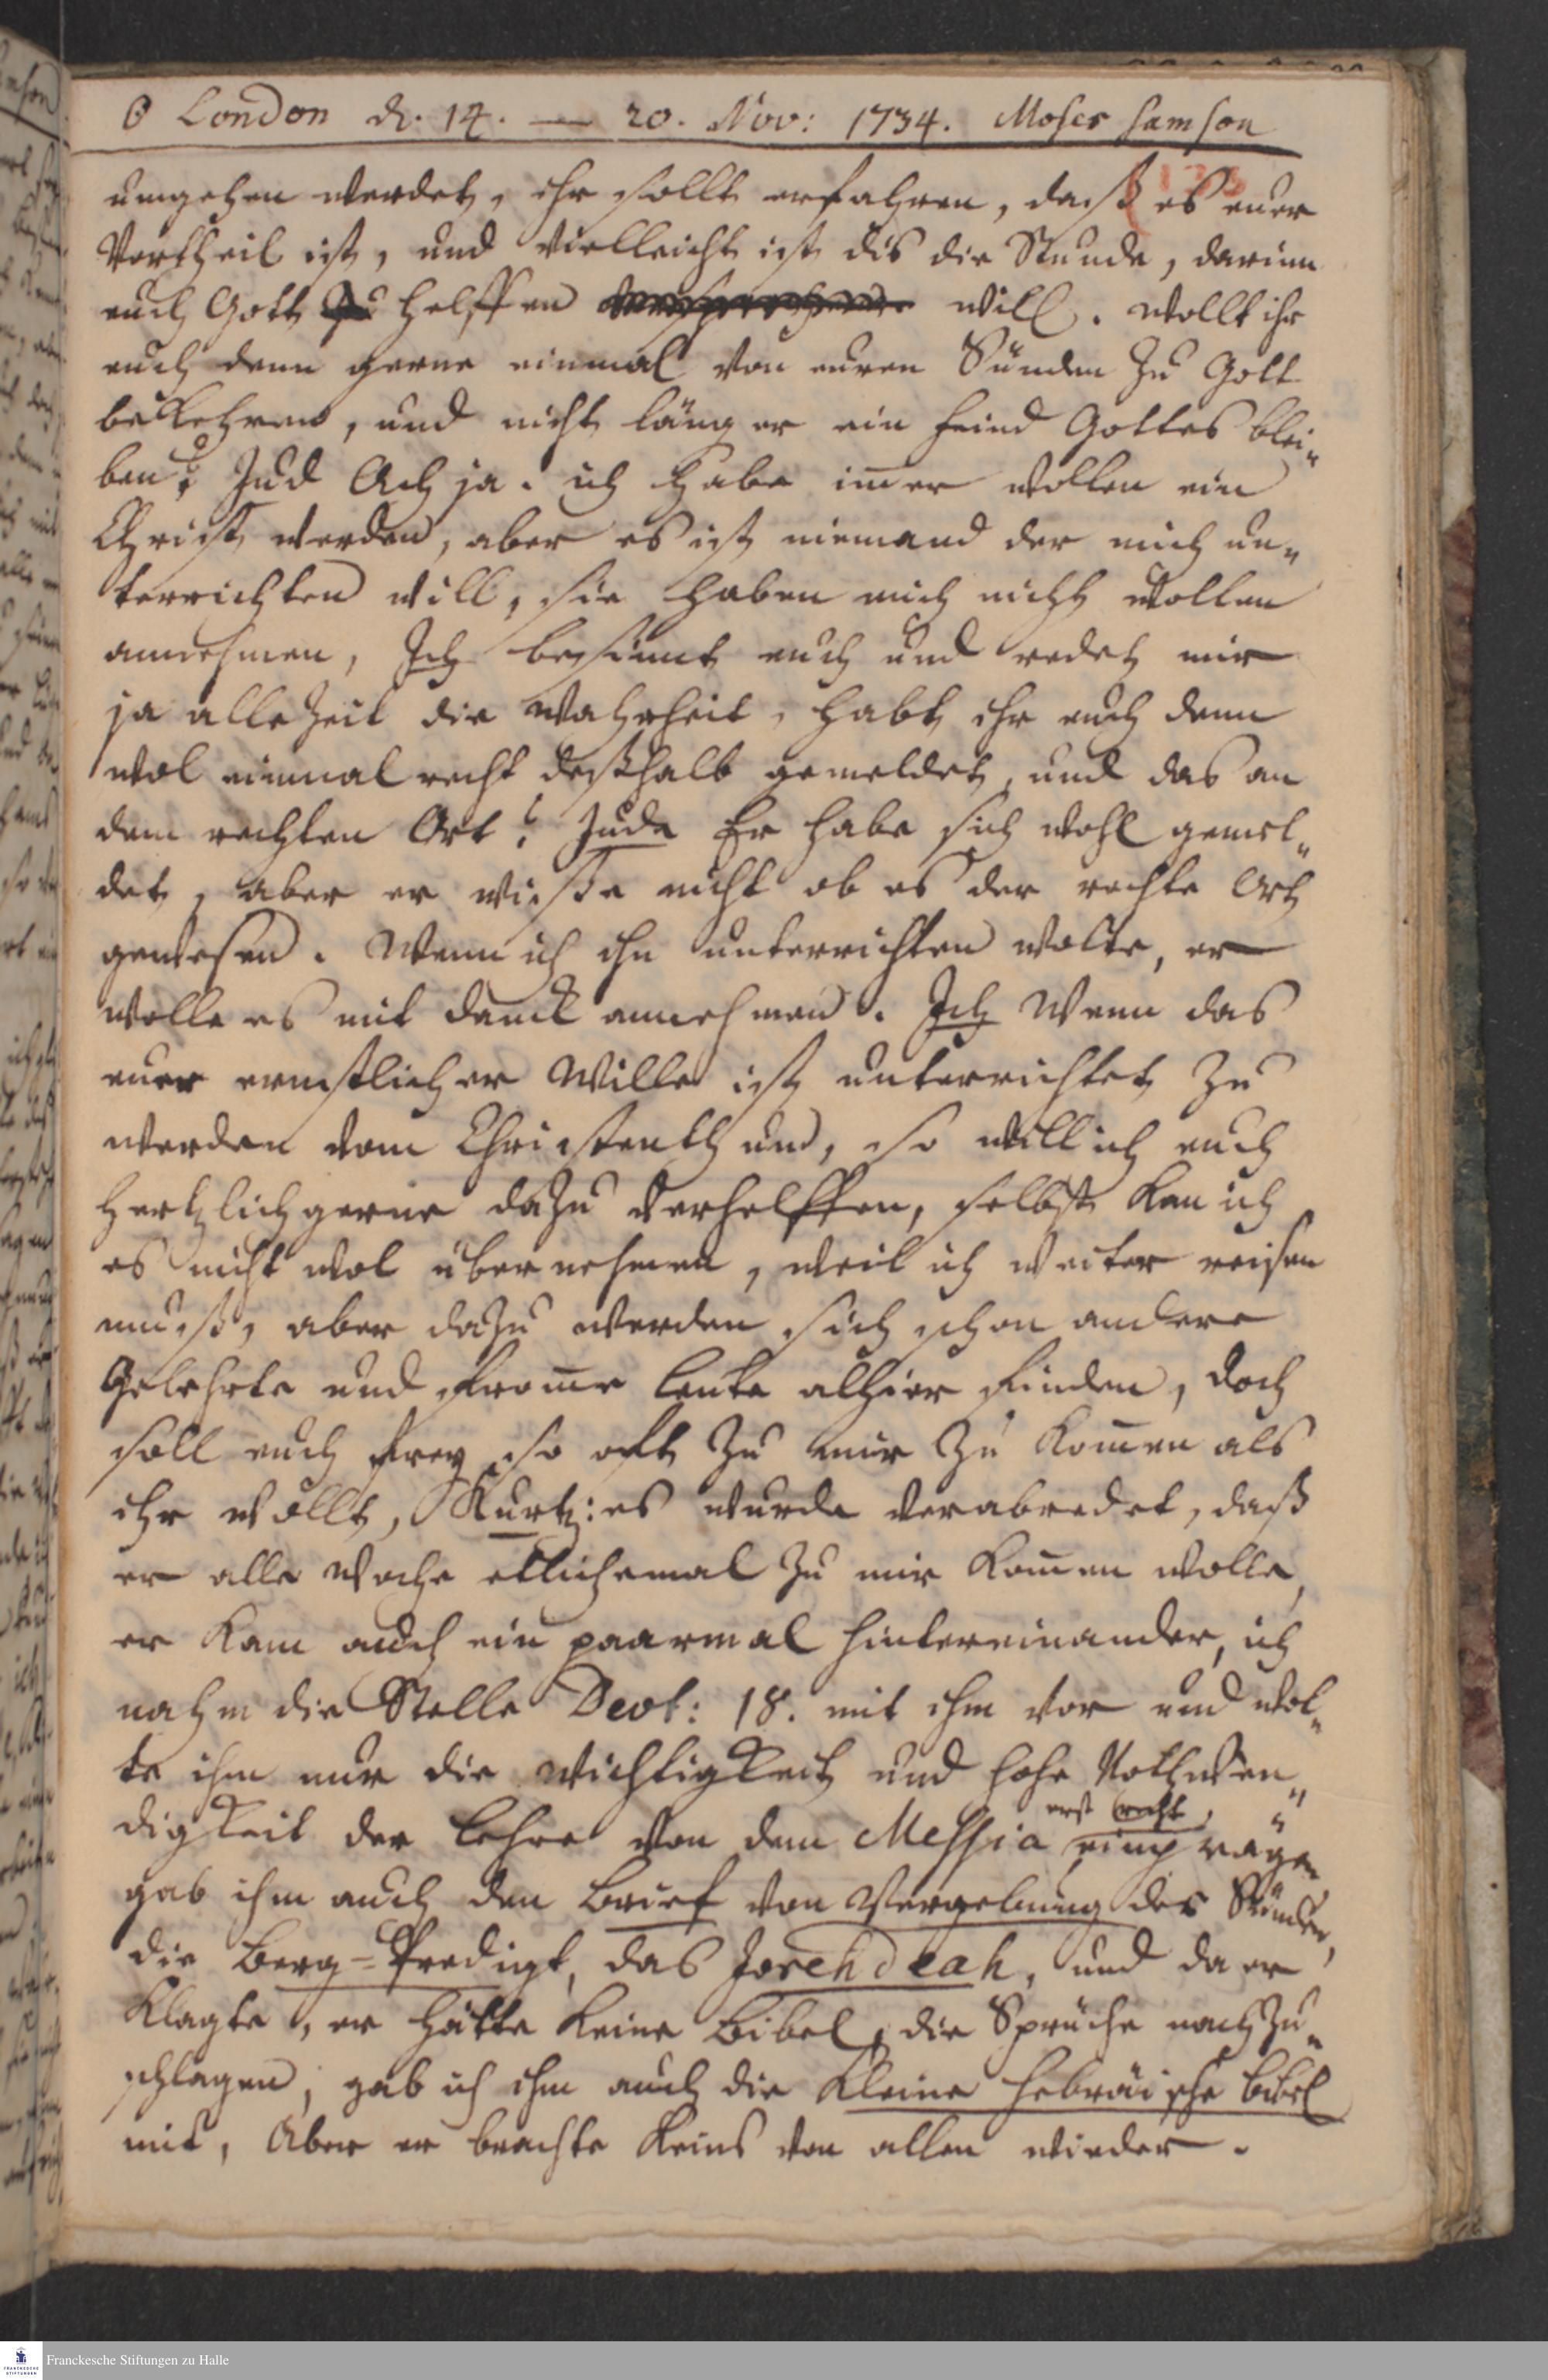 London d. 14. — 20. Nov: 1734. Moses Samson
umgehen werdet, ihr sollt erfahren, daß es euer
Vortheil ist, und vielleicht ist dis die Stunde, darinn
euch Gott helffen will. Wollt ihr
euch denn gerne einmal von euren Sünden zu Gott
bekehren, und nicht länger ein Feind Gottes blei„
ben? Jud Ach ja. ich habe im̅er wollen ein
Christ werden, aber es ist niemand der mich un„
terrichten will, sie haben mich nicht wollen
annehmen, Ich besinnt euch und redet mir
ja allezeit die Wahrheit, habt ihr euch denn
wol einmal recht deßhalb gemeldet, und das an
dem rechten Ort? Jude Er habe sich wohl gemel„
det, aber er wisse nicht ob es der rechte Ort
gewesen. Wenn ich ihn unterrichten wolte, er
wolle es mit danck annehmen. Ich Wenn das
euer ernstlicher Wille ist unterrichtet zu
werden vom Christenthum, so will ich euch
hertzlich gerne dazu verhelffen, selbst kan ich
es nicht wol übernehmen, weil ich weiter reisen
muß, aber dazu werden sich schon andere
Gelehrte und from̅e Leute alhier finden, doch
soll euch frey so oft zu mir zu kom̅en als
ihr wollt, Kurtz: es wurde verabredet, daß
er alle Woche etlichemal zu mir kom̅en wolle,
er kam auch ein paarmal hintereinander, ich
nahm die Stelle Deut: 18. mit ihm vor und wol„
te ihm nur die Wichtigkeit und hohe Nothwen„
digkeit der Lehre von dem Messia erst recht einprägen,
gab ihm auch den Brief von Vergebung der Sünden,
die Berg=Predigt, das Joreh deah, und da er
klagte, er hätte keine Bibel, die Sprüche nachzu„
schlagen, gab ich ihm auch die kleine hebräische Bibel
mit, Aber er brachte keins von allen wieder.
Franckesche Stiftungen zu Halle
FRANCKESCHE
STIFTUNGEN